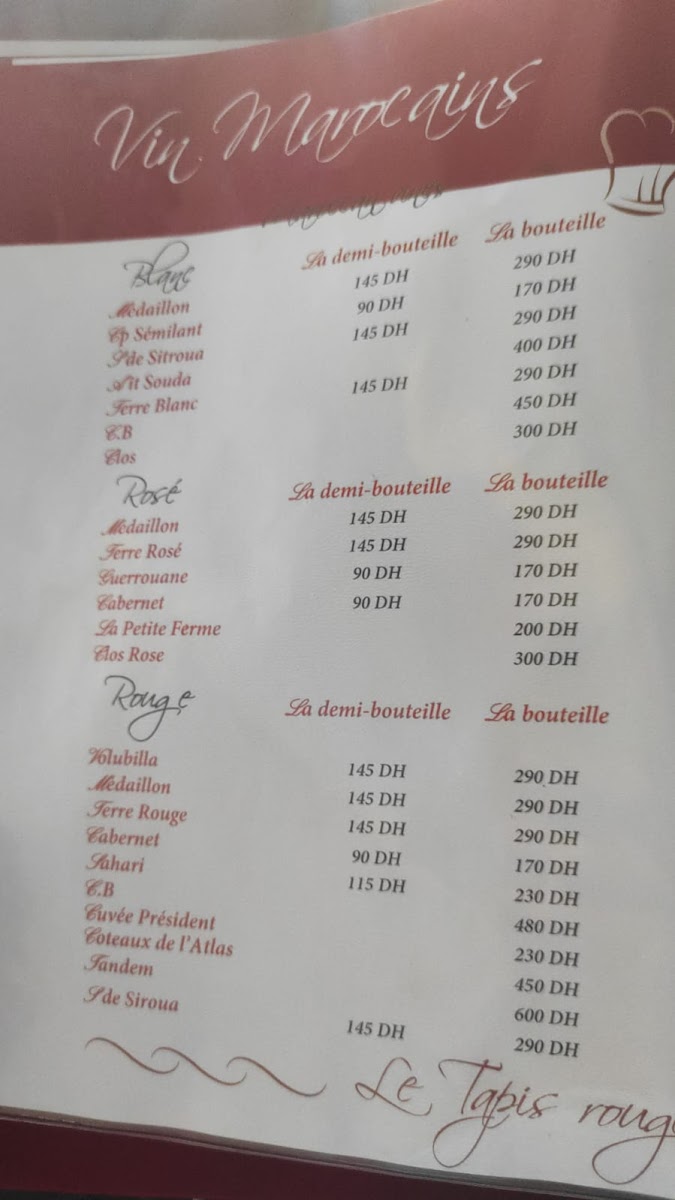 Vin Marocains
Blanc La demi-bouteille La bouteille
Médaillon 145 DH 290 DH
Cp Sémilant 90 DH 170 DH
S de Sitroua 145 DH 290 DH
Aït Souda 400 DH
Terre Blanc 145 DH 290 DH
C.B 450 DH
Clos 300 DH
Rosé La demi-bouteille La bouteille
Médaillon 145 DH 290 DH
Terre Rosé 145 DH 290 DH
Guerrouane 90 DH 170 DH
Cabernet 90 DH 170 DH
La Petite Ferme 200 DH
Clos Rose 300 DH
Rouge La demi-bouteille La bouteille
Volubilla 145 DH 290 DH
Médaillon 145 DH 290 DH
Terre Rouge 145 DH 290 DH
Cabernet 90 DH 170 DH
Sahari 115 DH 230 DH
C.B 480 DH
Cuvée Président 230 DH
Coteaux de l'Atlas 450 DH
Tandem 600 DH
S de Siroua 145 DH 290 DH
Le Tapis roug